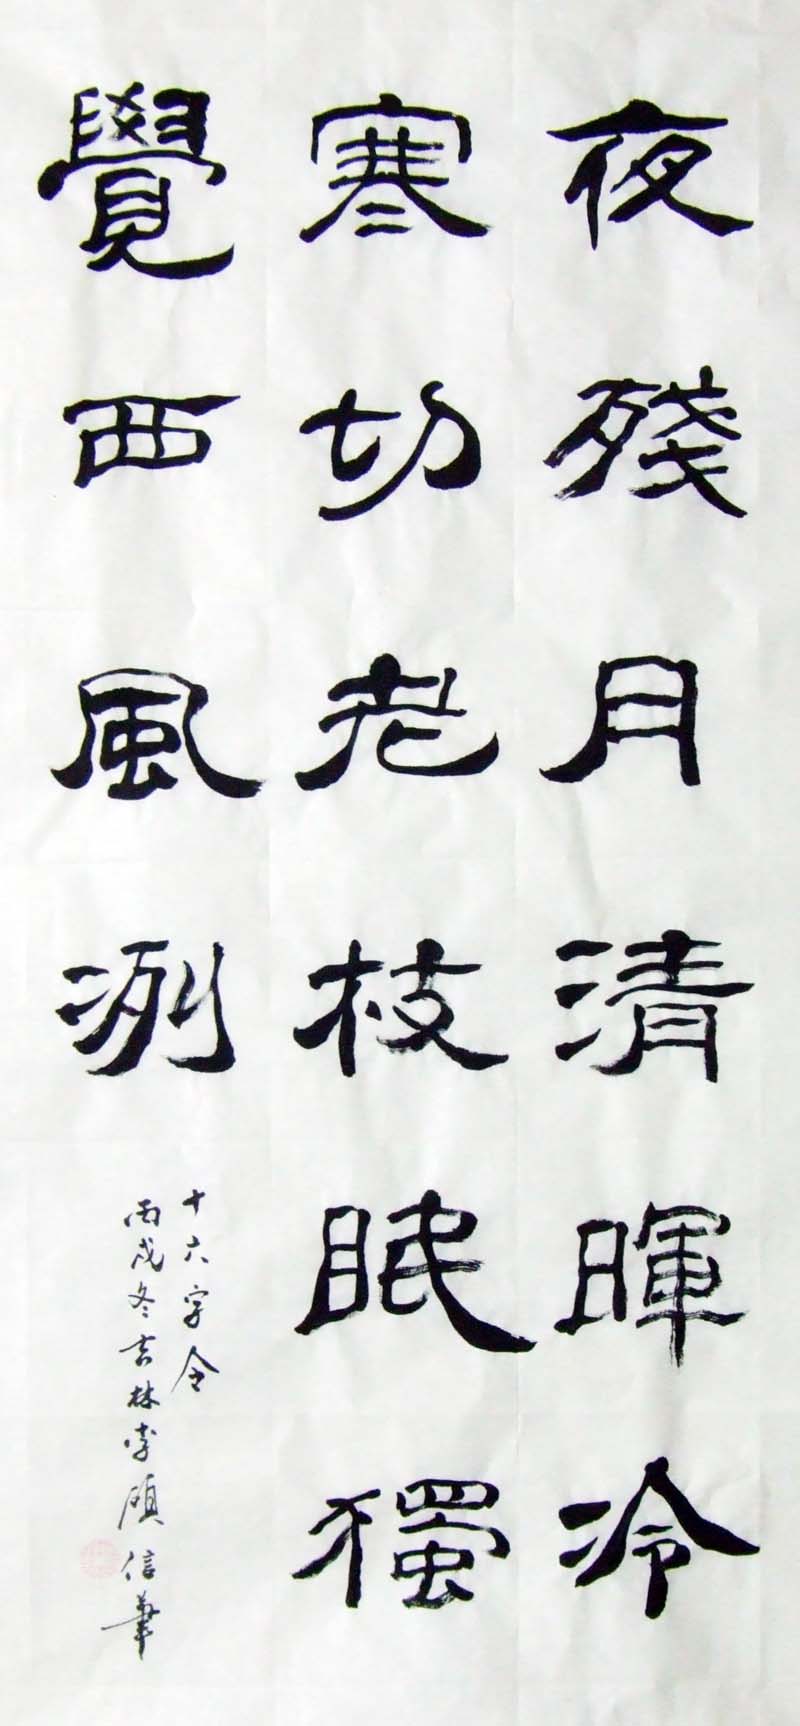 夜殘月清暉冷
寒切老枝眠獨
覺西風洌
十六字令
丙戌冬吉林李頎信筆